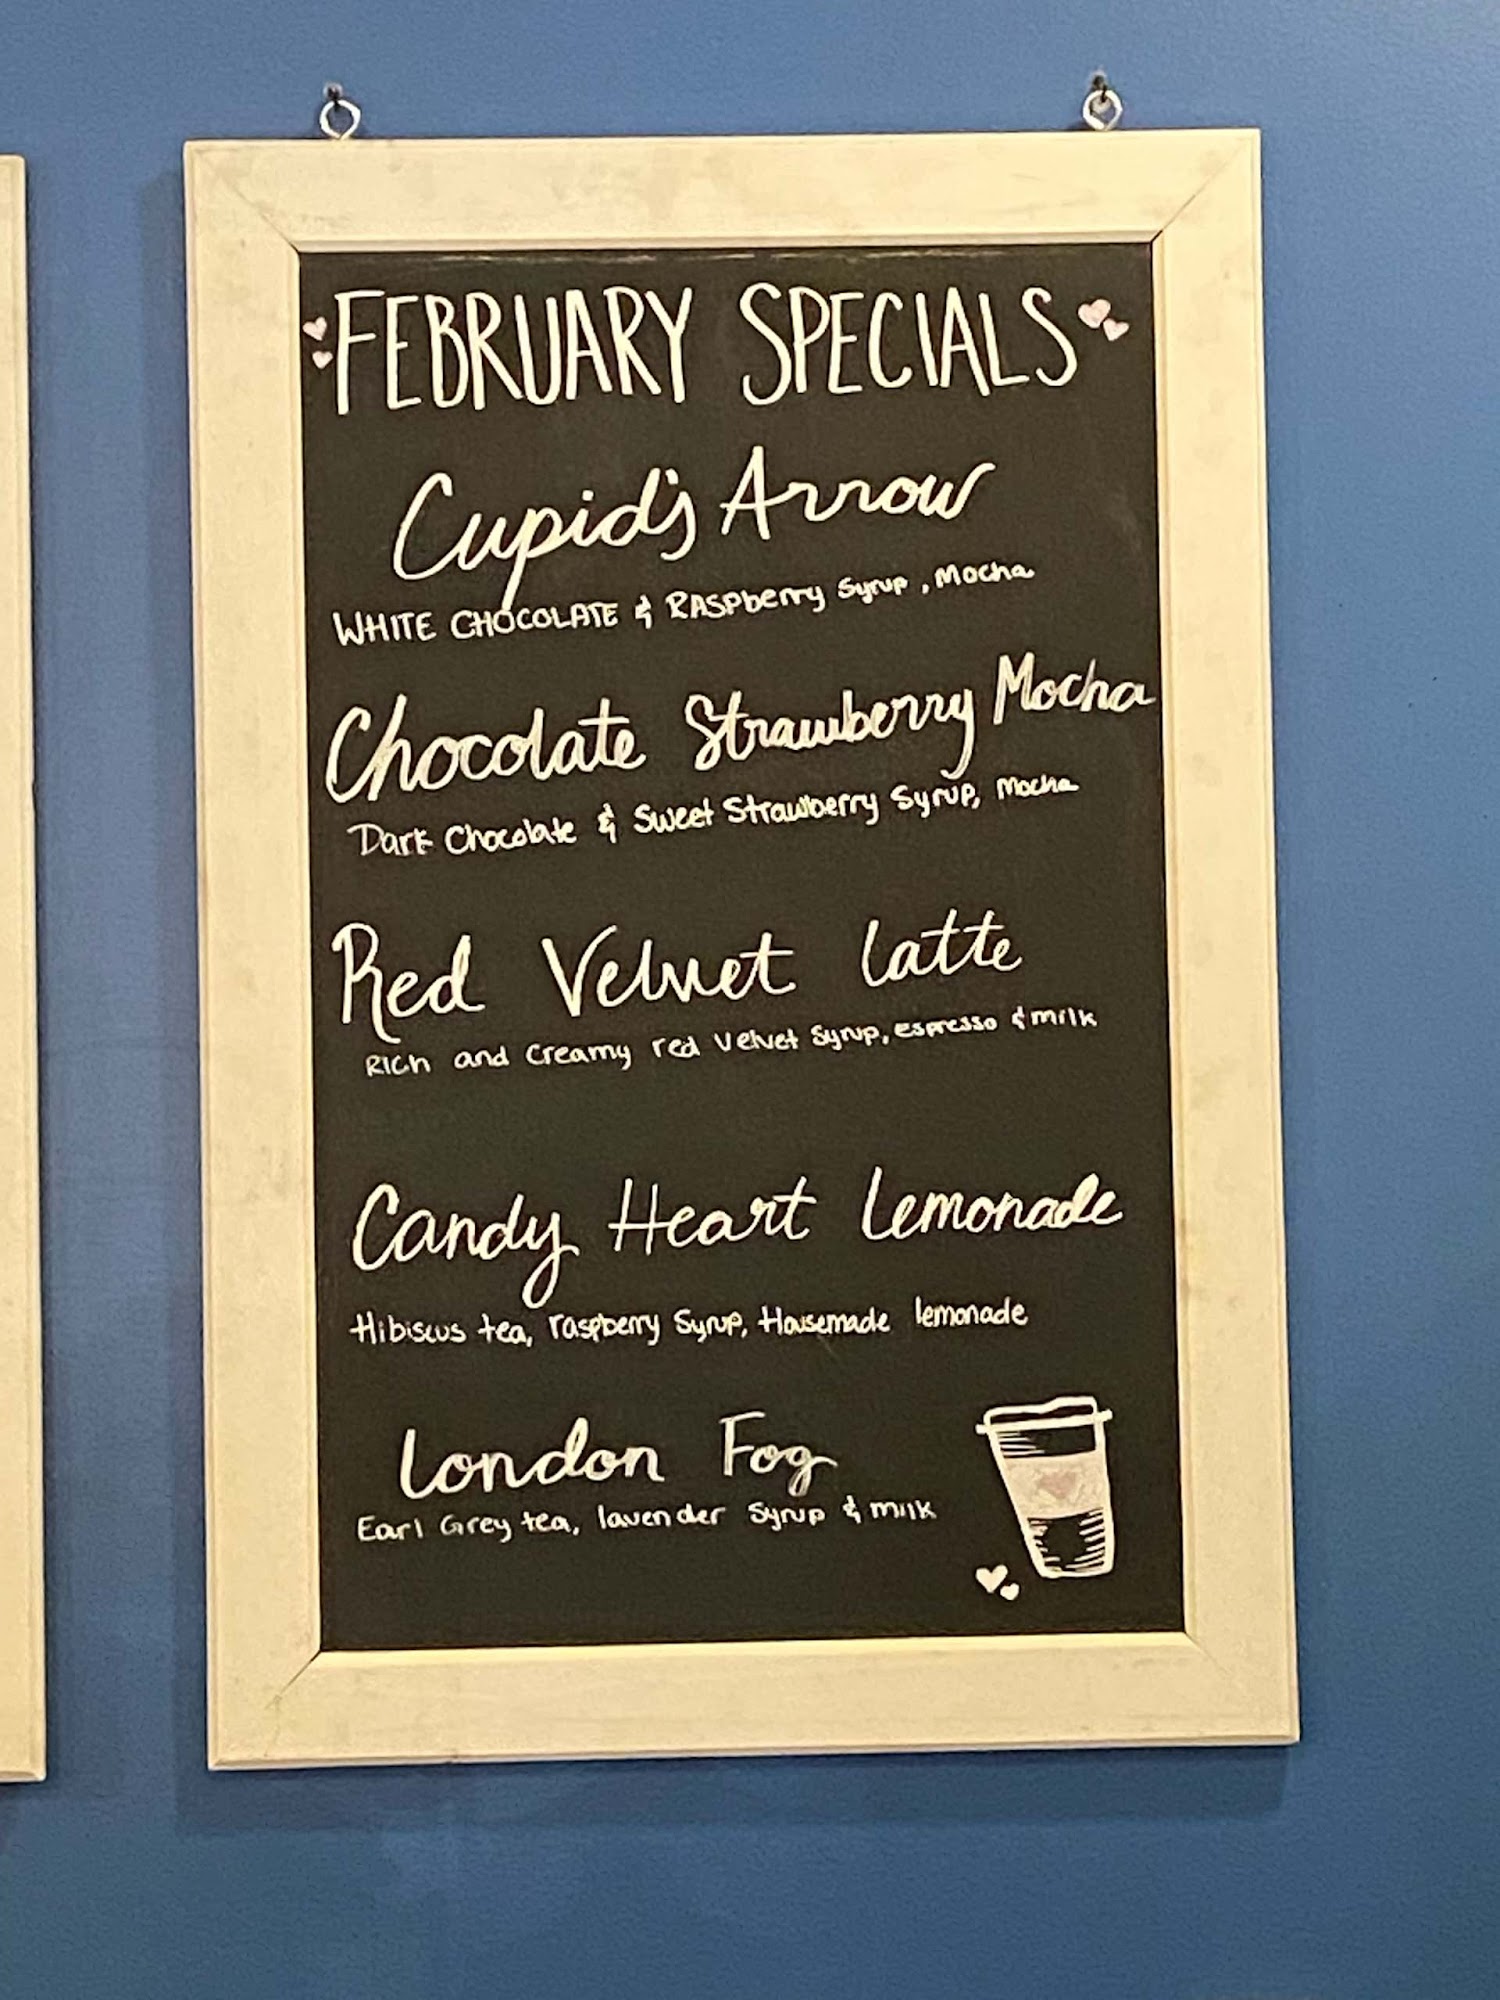 FEBRUARY SPECIALS
Cupid's Arrow
WHITE CHOCOLATE & RASPberry Syrup, Mocha
Chocolate Strawberry Mocha
Dark Chocolate & Sweet Strawberry Syrup, Mocha
Red Velvet Latte
Rich and Creamy red Velvet Syrup, espresso & milk
Candy Heart Lemonade
Hibiscus tea, raspberry Syrup, Housemade lemonade
London Fog
Earl Grey tea, lavender Syrup & milk